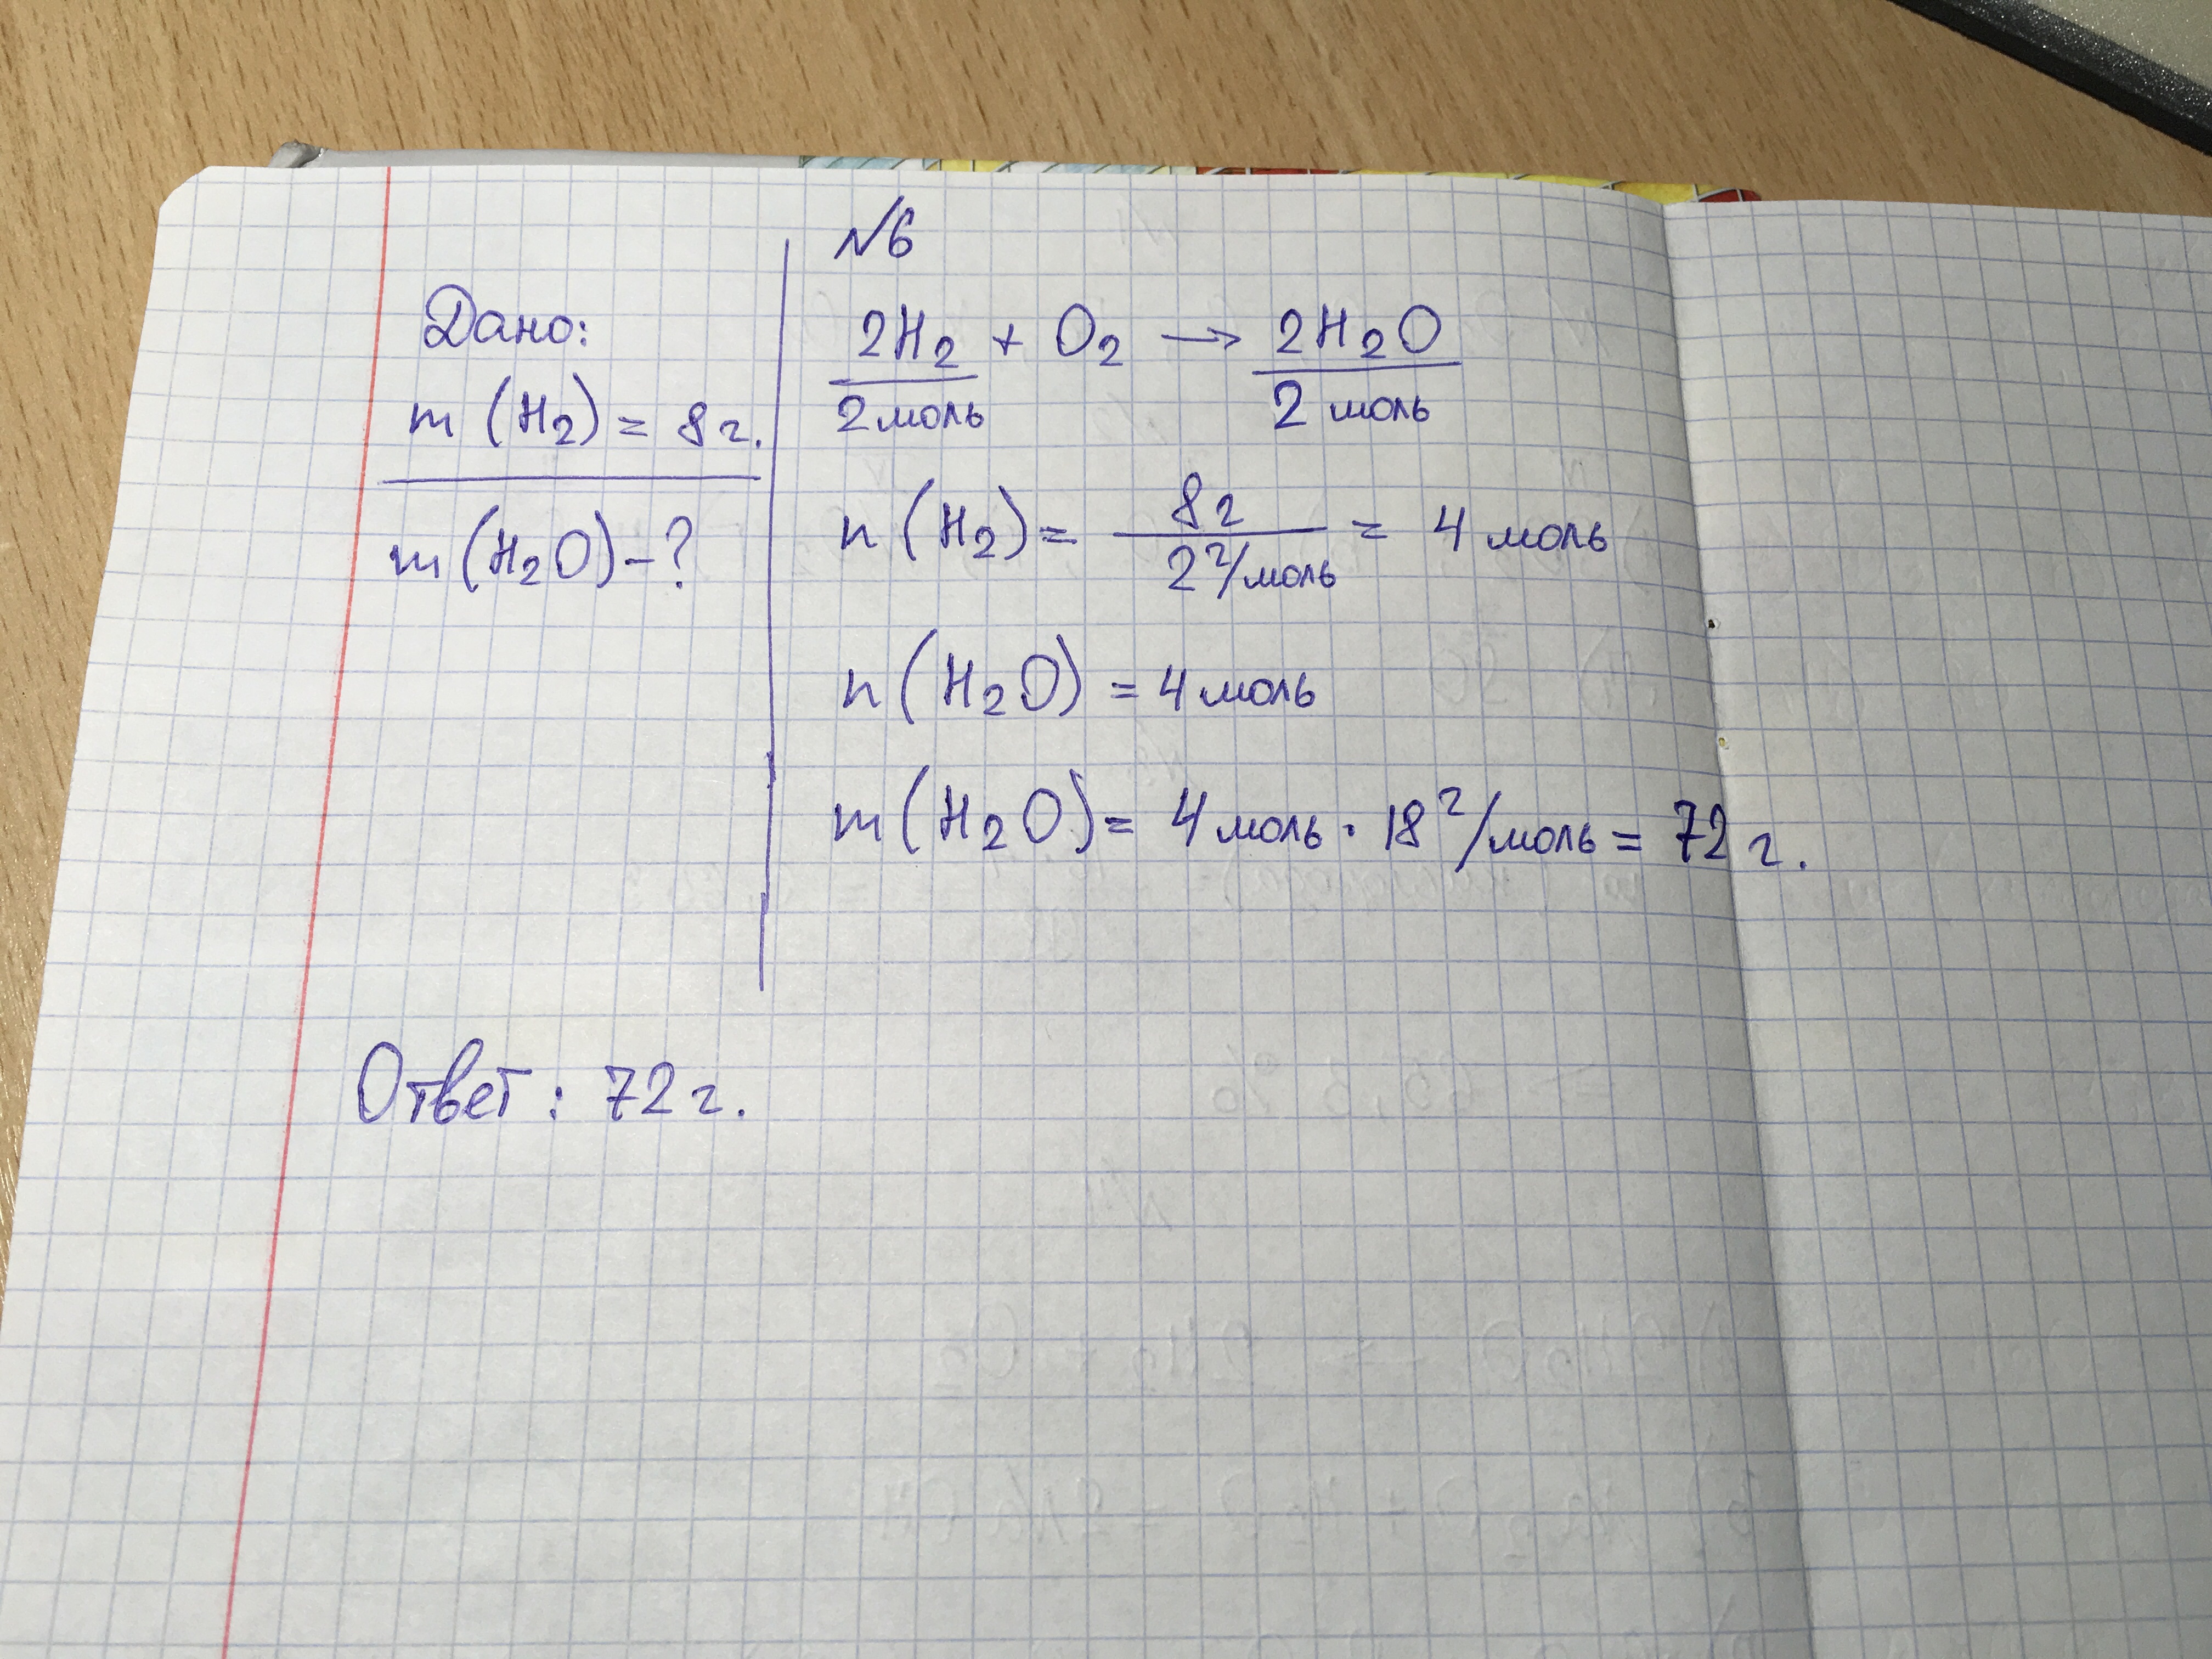 №6
Дано:
m (H₂) = 8г.
m (H₂O) - ?
2H₂ + O₂ → 2H₂O
2 моль 2 моль
n (H₂) = 8г / 2 г/моль = 4 моль
n (H₂O) = 4 моль
m (H₂O) = 4 моль · 18 г/моль = 72 г.
Ответ: 72 г.